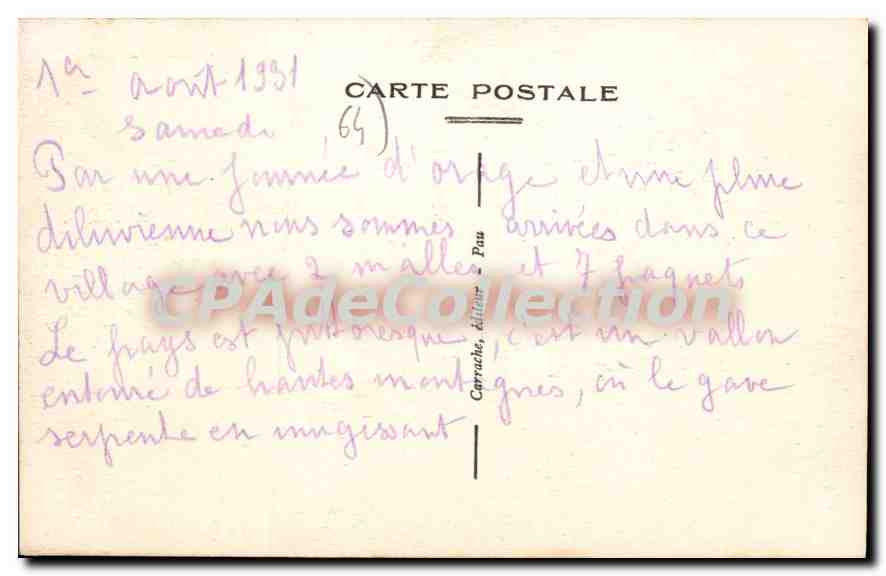 1er août 1931
CARTE POSTALE
samedi
64)
Par une journée d'orage et une pluie
diluvienne nous sommes arrivées dans ce
village avec 2 malles et 7 paquets
CPAdeCollection
Le pays est pittoresque, c'est un vallon
entouré de hautes montagnes, où le gave
serpente en mugissant
Carrache, éditeur - Pau